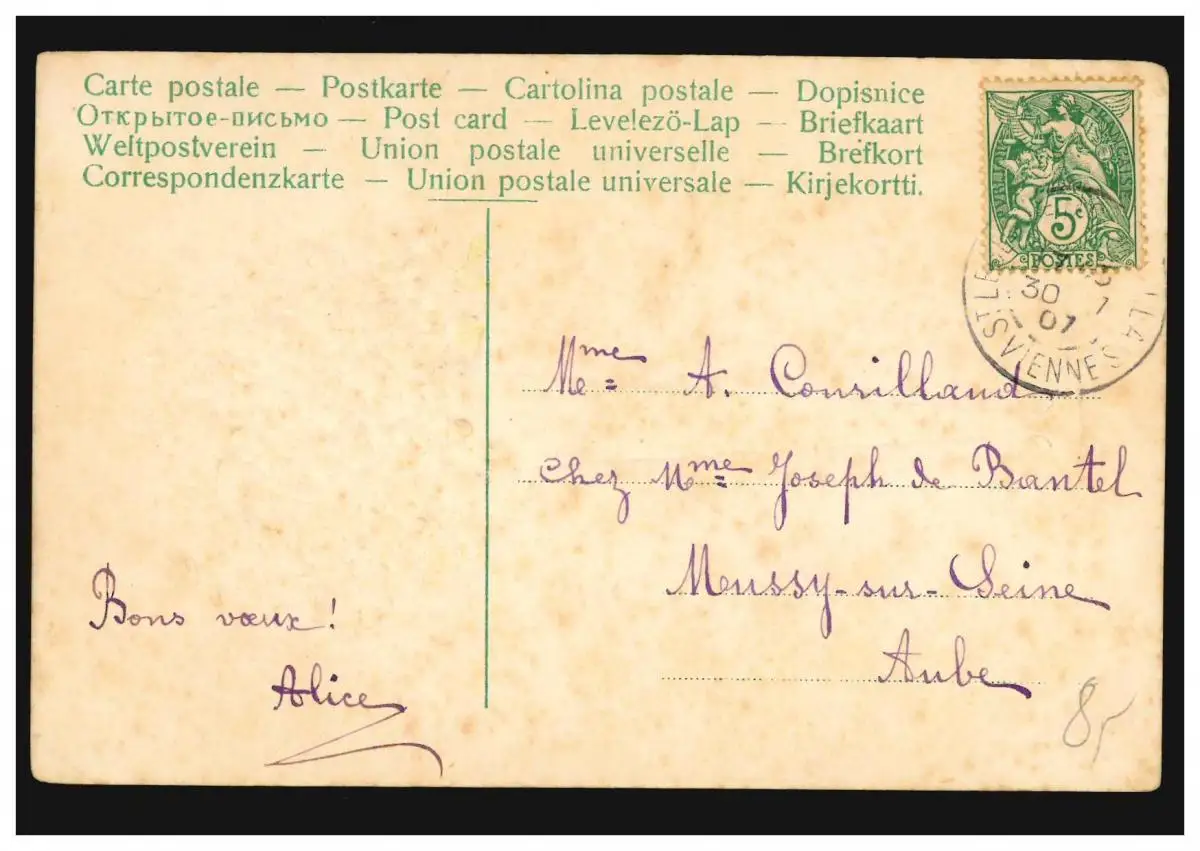 Carte postale — Postkarte — Cartolina postale — Dopisnice
Открытое-письмо — Post card — Levelezö-Lap — Briefkaart
Weltpostverein — Union postale universelle — Brefkort
Correspondenzkarte — Union postale universale — Kirjekortti.
5c
POSTES
30
1
07
LA
VIENNE
Mme A. Courilland
Chez Mme Joseph de Bantel
Meussy-sur-Seine
Aube
Bons vœux !
Alice
8,-